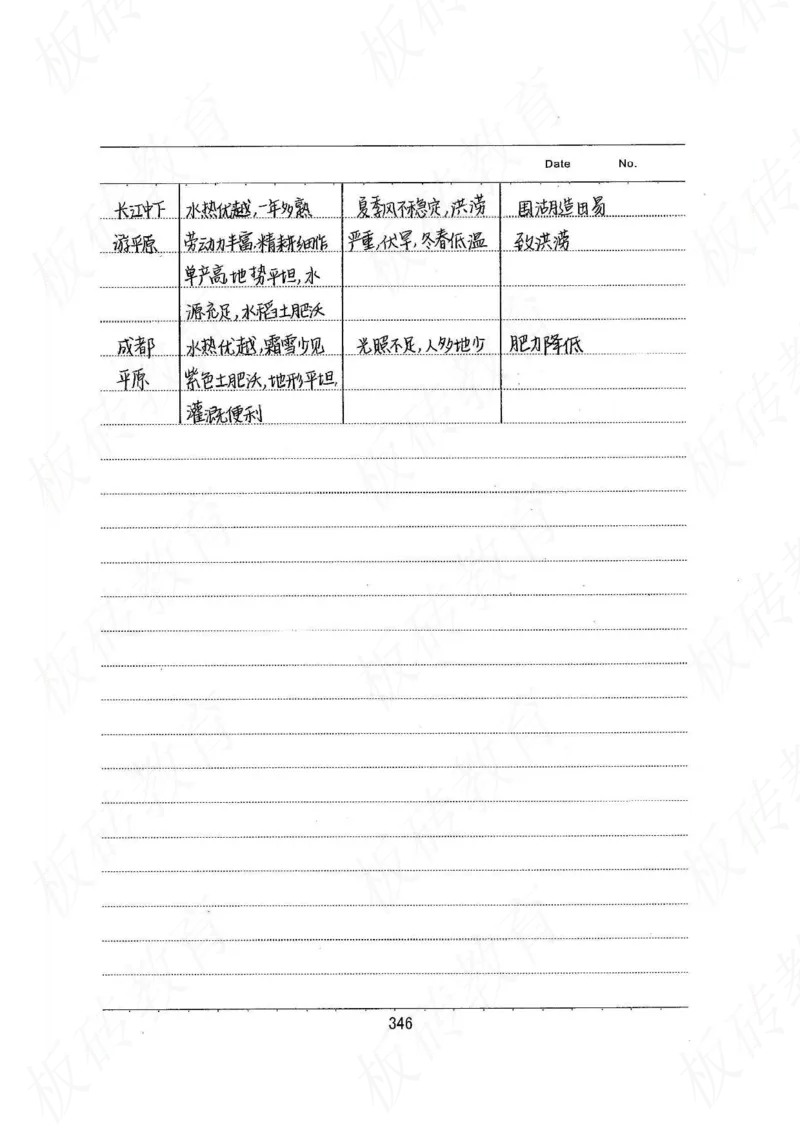 Date No.
长江中下 水热优越,一年多熟 夏季风不稳定,洪涝 围湖造田易
游平原 劳动力丰富,精耕细作 严重,伏旱,冬春低温 致洪涝
单产高,地势平坦,水
源充足,水稻土肥沃
成都 水热优越,霜雪少见 光照不足,人多地少 肥力降低
平原 紫色土肥沃,地形平坦,
灌溉便利
346
板砖教育